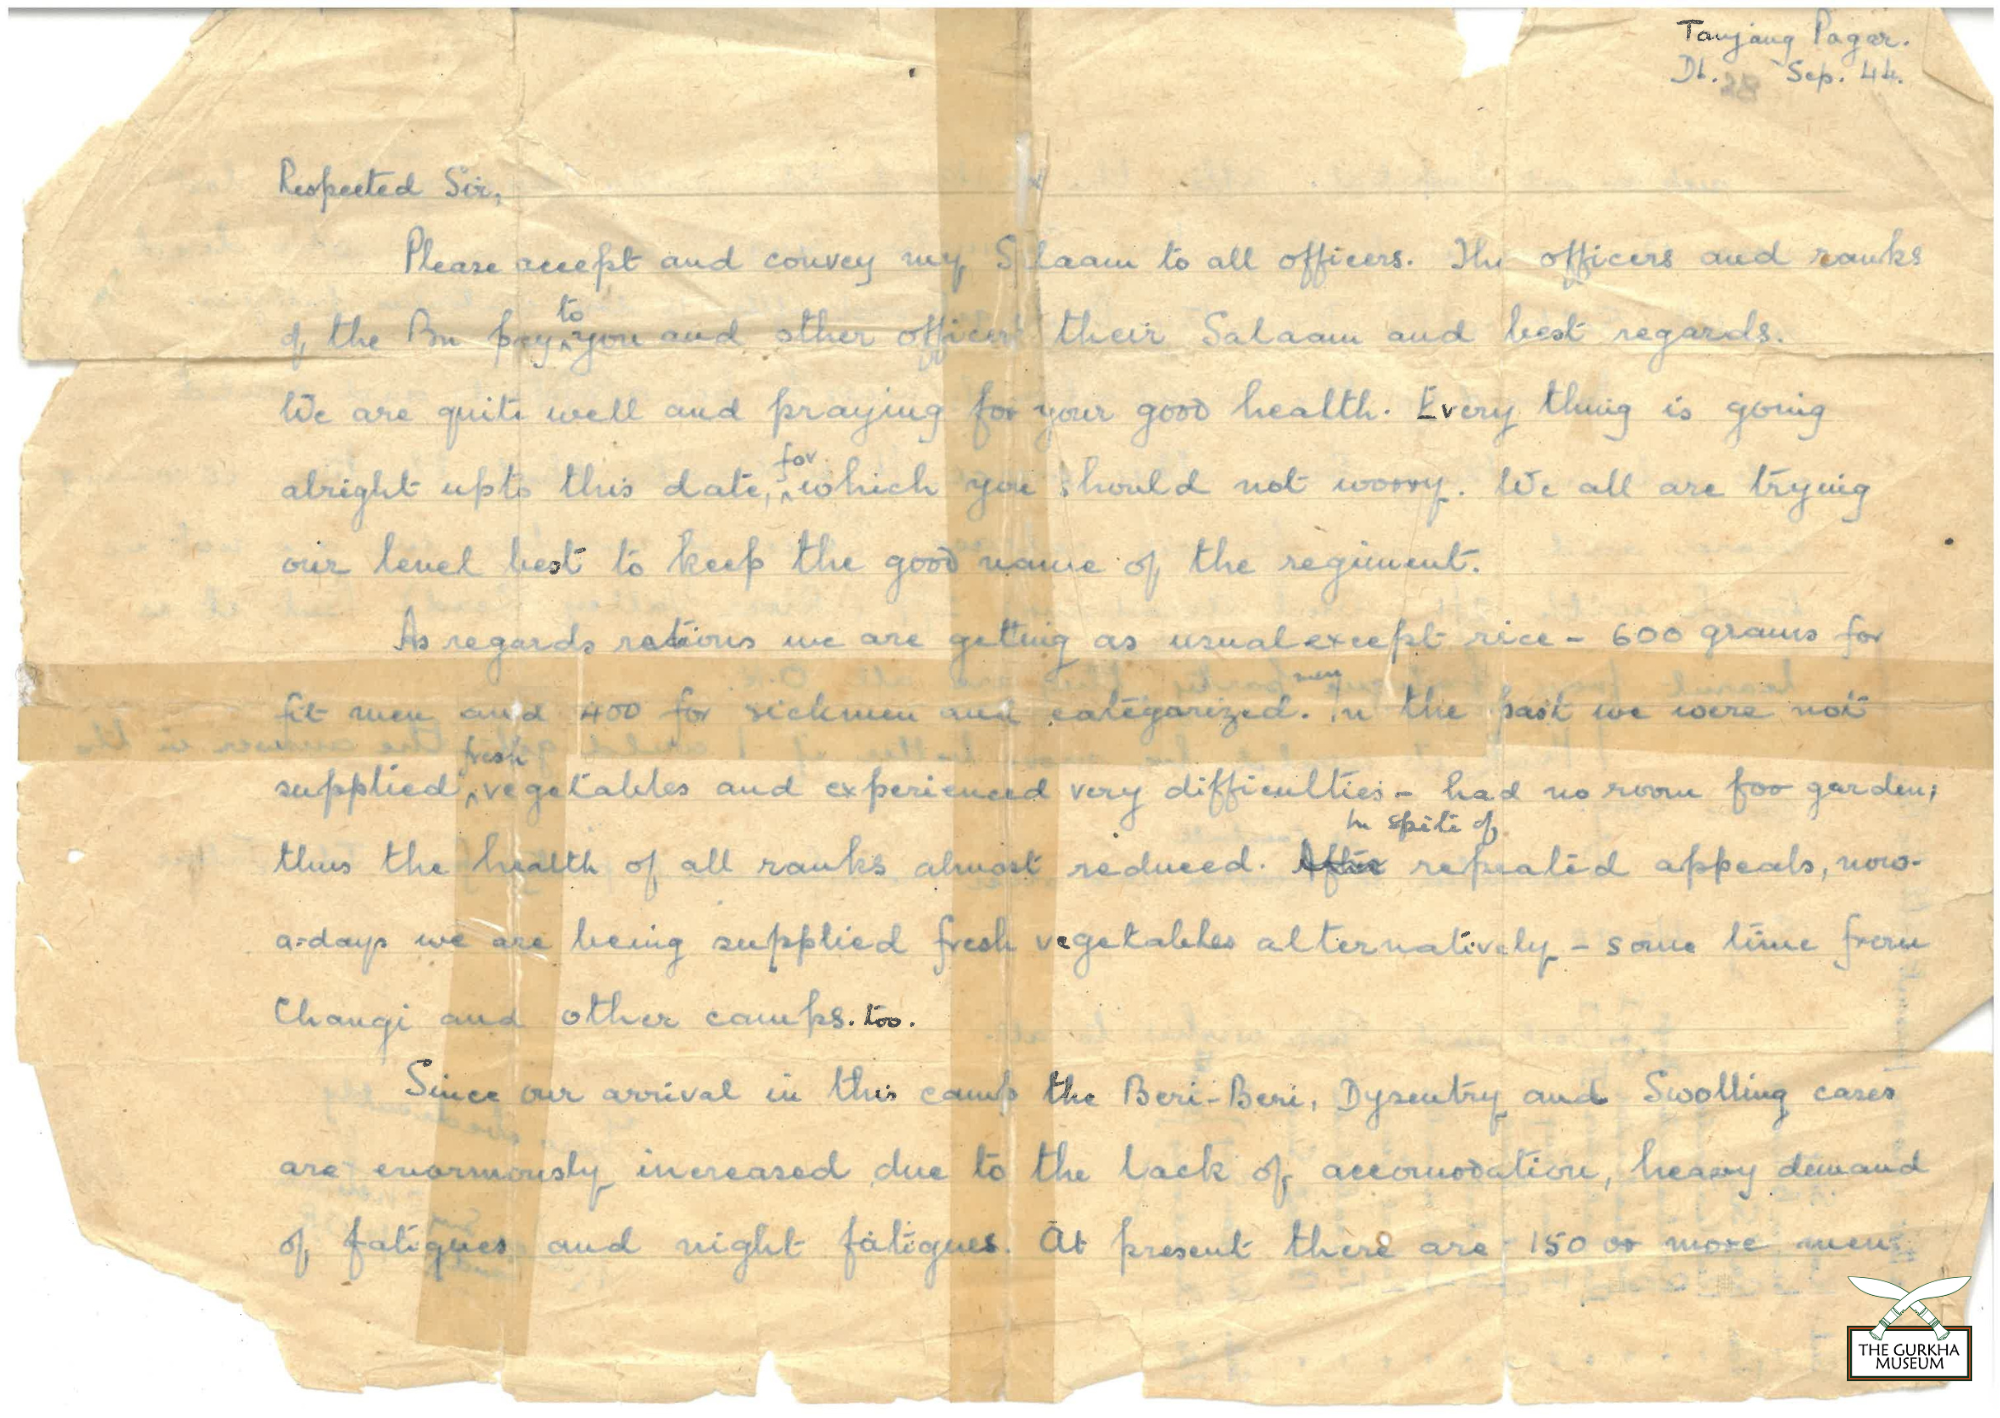 Tanjang Pagar.
Dt. 28 Sep. 44.
Respected Sir,
Please accept and convey my Salaam to all officers. The officers and ranks
of the Bn pay to you and other officers their Salaam and best regards.
We are quite well and praying for your good health. Every thing is going
alright upto this date, for which you should not worry. We all are trying
our level best to keep the good name of the regiment.
As regards rations we are getting as usual except rice - 600 grams for
fit men and 400 for sickmen and categarized men. In the past we were not
supplied fresh vegetables and experienced very difficulties - had no room foo garden;
thus the health of all ranks almost reduced. After In spite of repeated appeals, now-
a-days we are being supplied fresh vegetables alternatively - some time from
Changi and other camps. too.
Since our arrival in this camp the Beri-Beri, Dysentry and Swolling cases
are enormously increased due to the lack of accomodation, heavy demand
of fatigues and night fatigues. At present there are 150 or more men
THE GURKHA
MUSEUM